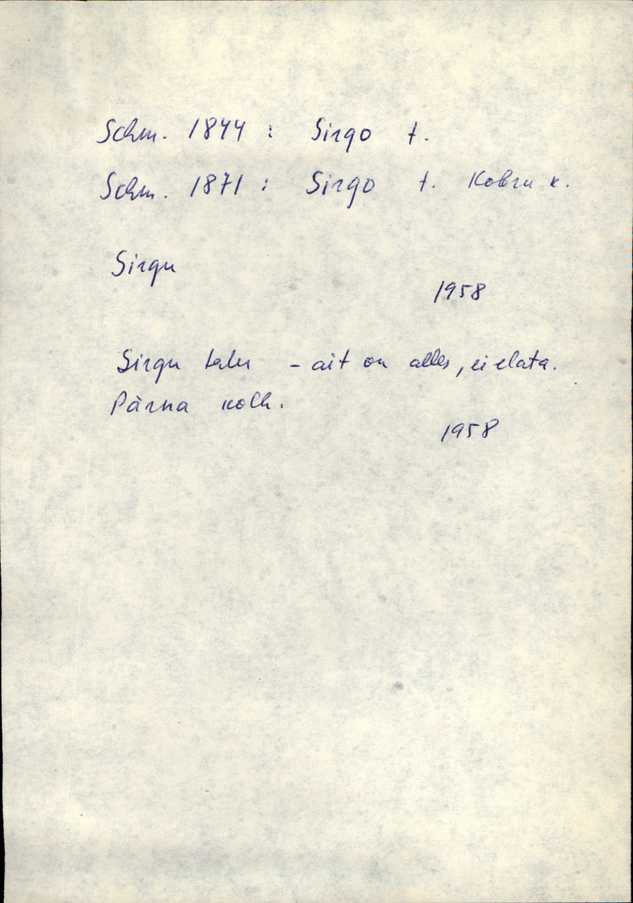 Schm. 1844 : Sirgo t.
Schm. 1871 : Sirgo t. Kobru k.
Sirgu
1958
Sirgu talu - ait on alles, ei elata.
Pärna kolh.
1958